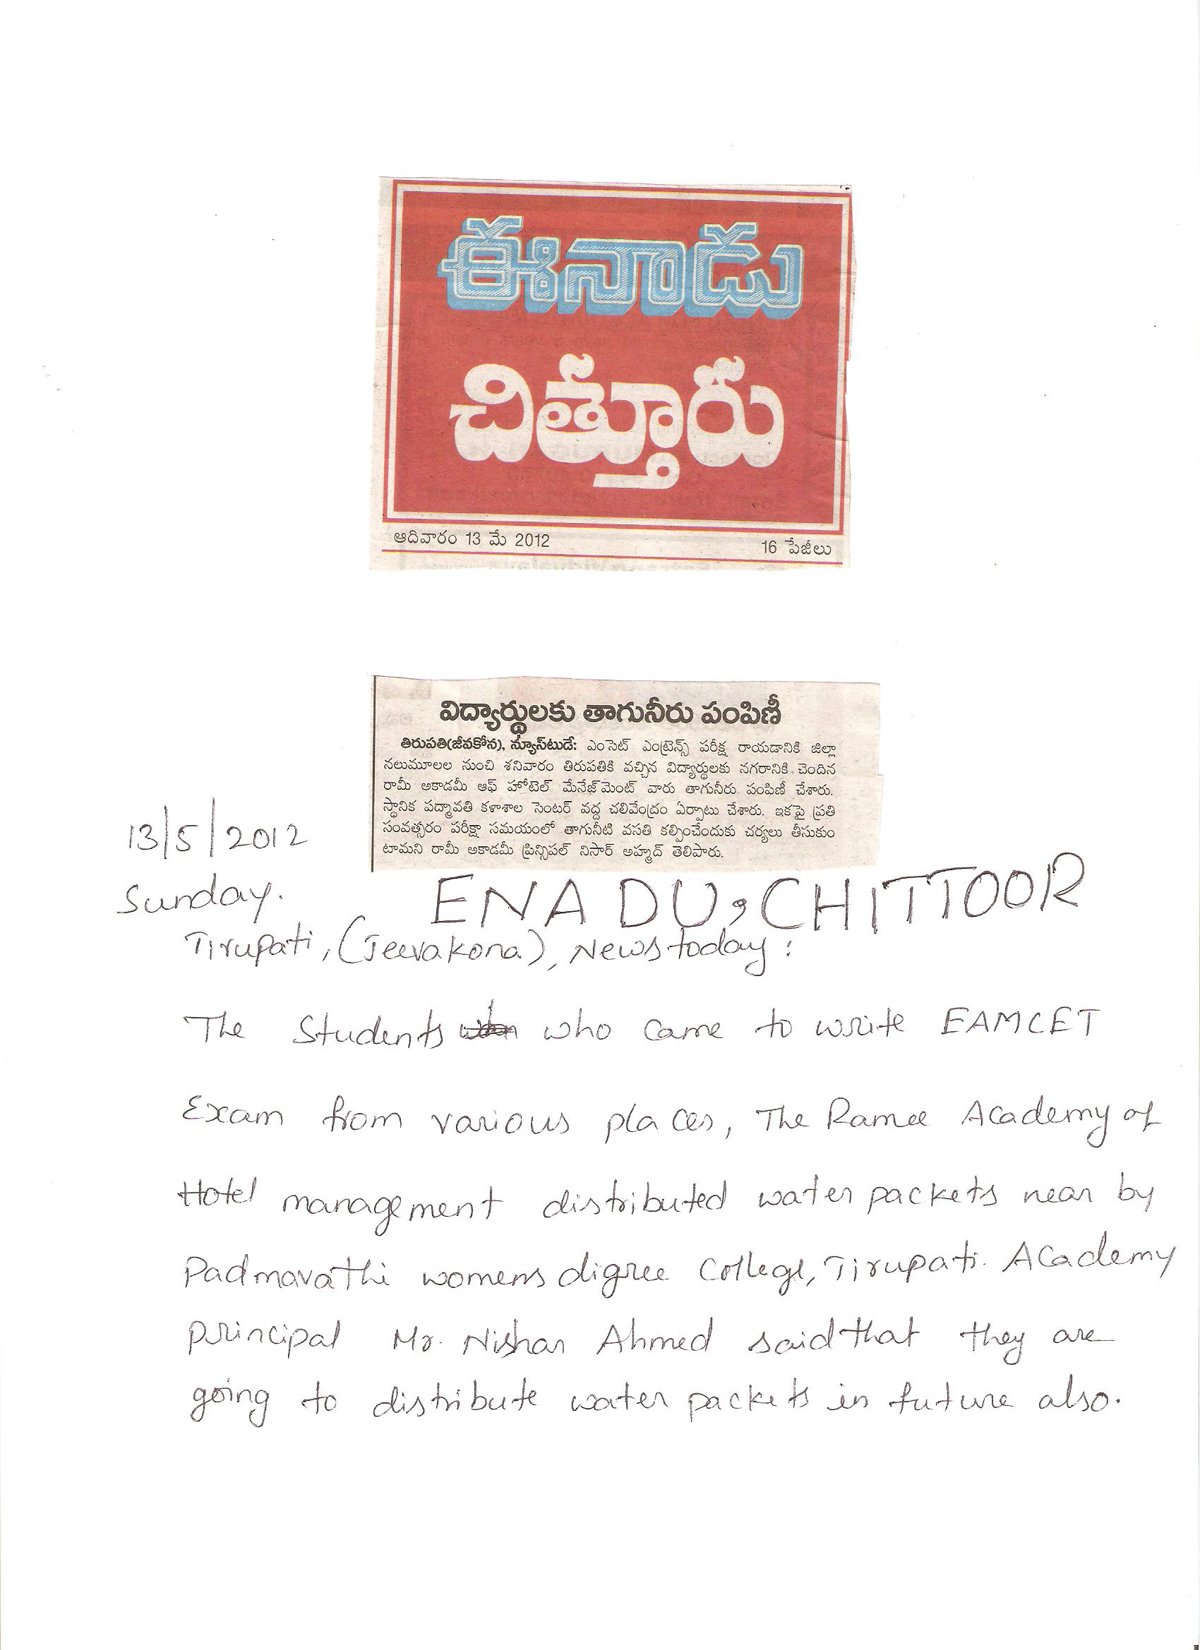 ఈనాడు
చిత్తూరు
ఆదివారం 13 మే 2012 16 పేజీలు
విద్యార్థులకు తాగునీరు పంపిణీ
తిరుపతి(జీవకోన), న్యూస్‌టుడే: ఎంసెట్ ఎంట్రెన్స్ పరీక్ష రాయడానికి జిల్లా
నలుమూలల నుంచి శనివారం తిరుపతికి వచ్చిన విద్యార్థులకు నగరానికి చెందిన
రామీ అకాడమీ ఆఫ్ హోటెల్ మేనేజ్‌మెంట్ వారు తాగునీరు పంపిణీ చేశారు.
స్థానిక పద్మావతి కళాశాల సెంటర్ వద్ద చలివేంద్రం ఏర్పాటు చేశారు. ఇకపై ప్రతి
సంవత్సరం పరీక్షా సమయంలో తాగునీటి వసతి కల్పించేందుకు చర్యలు తీసుకుం
టామని రామీ అకాడమీ ప్రిన్సిపల్ నిసార్ అహ్మద్ తెలిపారు.
13/5/2012
Sunday.
ENADU, CHITTOOR
Tirupati, (Jeevakona), Newstoday:
The Students who came to write EAMCET
Exam from various places, The Ramee Academy of
Hotel management distributed water packets near by
Padmavathi womens digree College, Tirupati. Academy
principal Mr. Nishar Ahmed said that they are
going to distribute water packets in future also.